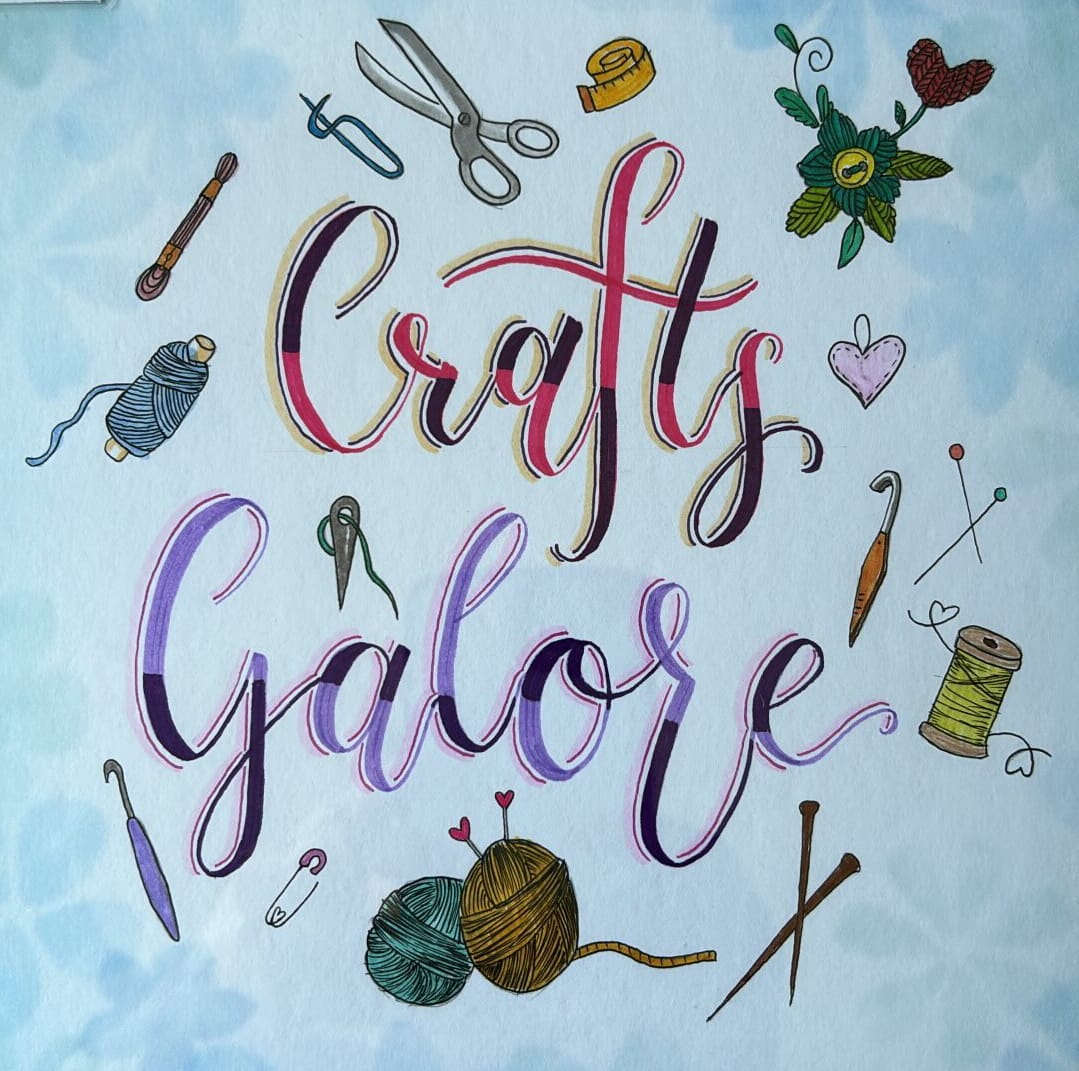 Crafts
Galore